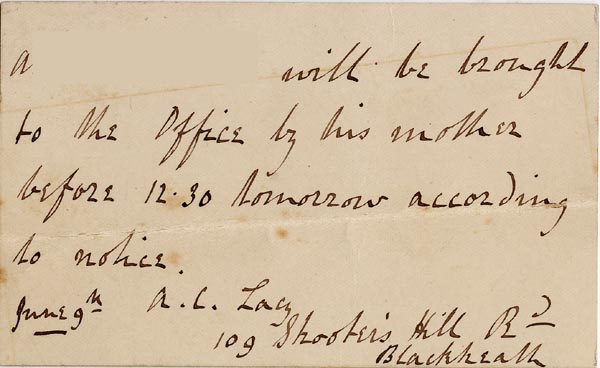 A will be brought
to the Office by his mother
before 12.30 tomorrow according
to notice.
June 9th A. C. Lacy
109 Shooter's Hill Rd
Blackheath